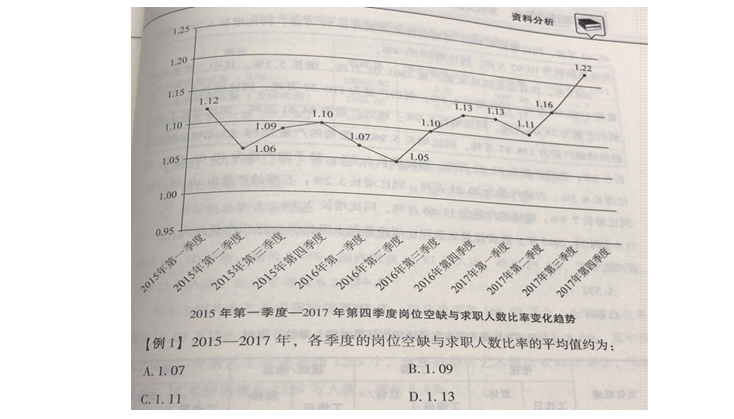 资料分析
1.25
1.20
1.15
1.10
1.05
1.00
0.95
1.12
1.06
1.09
1.10
1.07
1.05
1.10
1.13
1.13
1.11
1.16
1.22
2015年第一季度
2015年第二季度
2015年第三季度
2015年第四季度
2016年第一季度
2016年第二季度
2016年第三季度
2016年第四季度
2017年第一季度
2017年第二季度
2017年第三季度
2017年第四季度
2015 年第一季度—2017 年第四季度岗位空缺与求职人数比率变化趋势
【例 1】2015—2017 年，各季度的岗位空缺与求职人数比率的平均值约为：
A. 1. 07
B. 1. 09
C. 1. 11
D. 1. 13